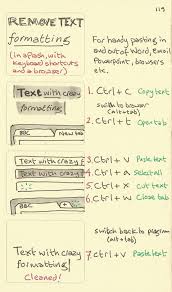 119
REMOVE TEXT
formatting
(in a flash, with
keyboard shortcuts
and a browser)
For handy pasting in
and out of Word, Email
Powerpoint, browsers
etc.
Text with crazy
formatting
1. Ctrl + C Copy text
switch to browser
(alt + tab)
2. Ctrl + t Open tab
BBC
New tab
3. Ctrl + v Paste text
Text with crazy form
4. Ctrl + a Select all
Text with crazy form
5. Ctrl + x Cut text
6. Ctrl + w Close tab
BBC
switch back to program
(alt + tab)
7. Ctrl + v Paste text
Text with crazy
formatting
Cleaned!